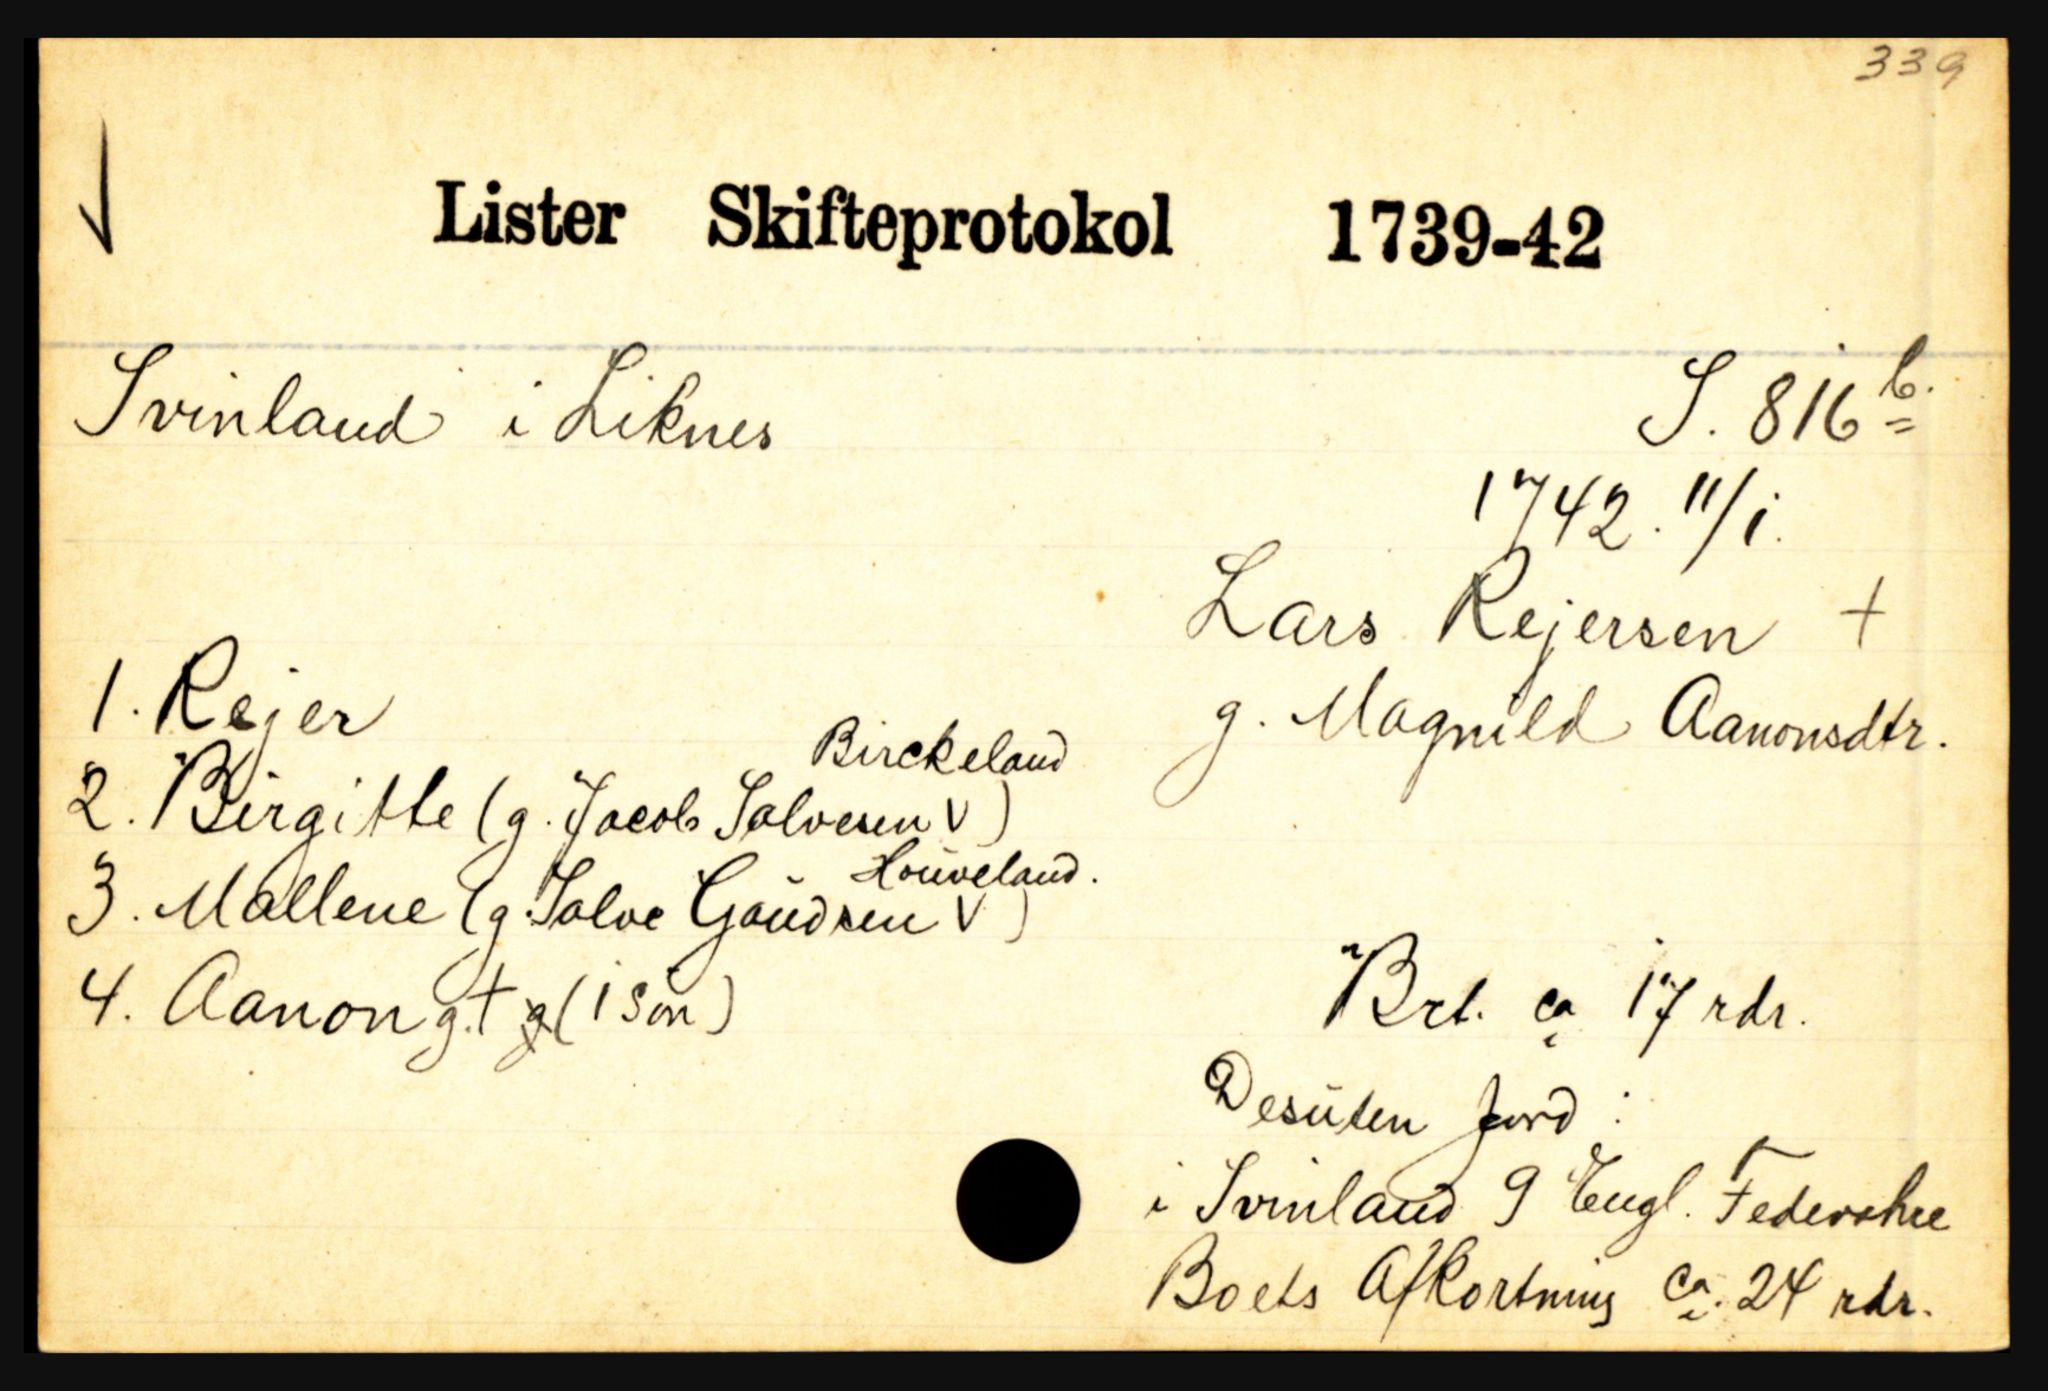 339
Lister Skifteprotokol 1739-42
Svinland i Liknes
S. 816 b.
1742. 11/1.
Lars Rejersen +
g. Magnild Aanonsdtr.
1. Rejer
Birckeland
2. Birgitte (g. Jacob Salvesen V)
Houveland.
3. Mallene (g. Salve Gaudsen V)
4. Aanon g. + (1 Søn)
Brt. ca 17 rdr.
Desuten Jord :
i Svinland 9 Engl. Federohee
Boets Afkortning ca. 24 rdr.